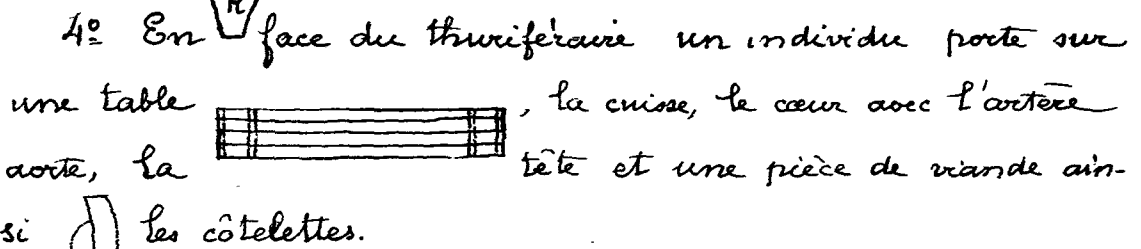 4º En face du thuriféraire un individu porte sur
une table , la cuisse, le cœur avec l'artère
aorte, la tête et une pièce de viande ain-
si les côtelettes.